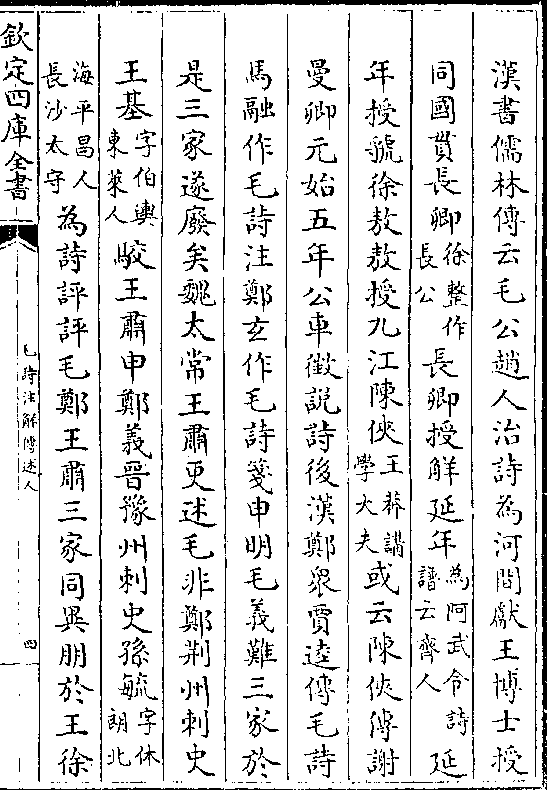 漢書儒林傳云毛公趙人治詩為河間獻王博士授
同國貫長卿徐整作長公長卿授解延年為阿武令詩譜云齊人延
年授虢徐敖敖授九江陳俠王莽講學大夫或云陳俠傳謝
曼卿元始五年公車徵説詩後漢鄭衆賈逵傳毛詩
馬融作毛詩注鄭玄作毛詩箋申明毛義難三家於
是三家遂廢矣魏太常王肅更述毛非鄭荆州刺史
王基字伯輿東萊人駮王肅申鄭義晉豫州刺史孫毓字休朗北
海平昌人長沙太守為詩評評毛鄭王肅三家同異朋於王徐
欽定四庫全書
毛詩注解傳述人
四